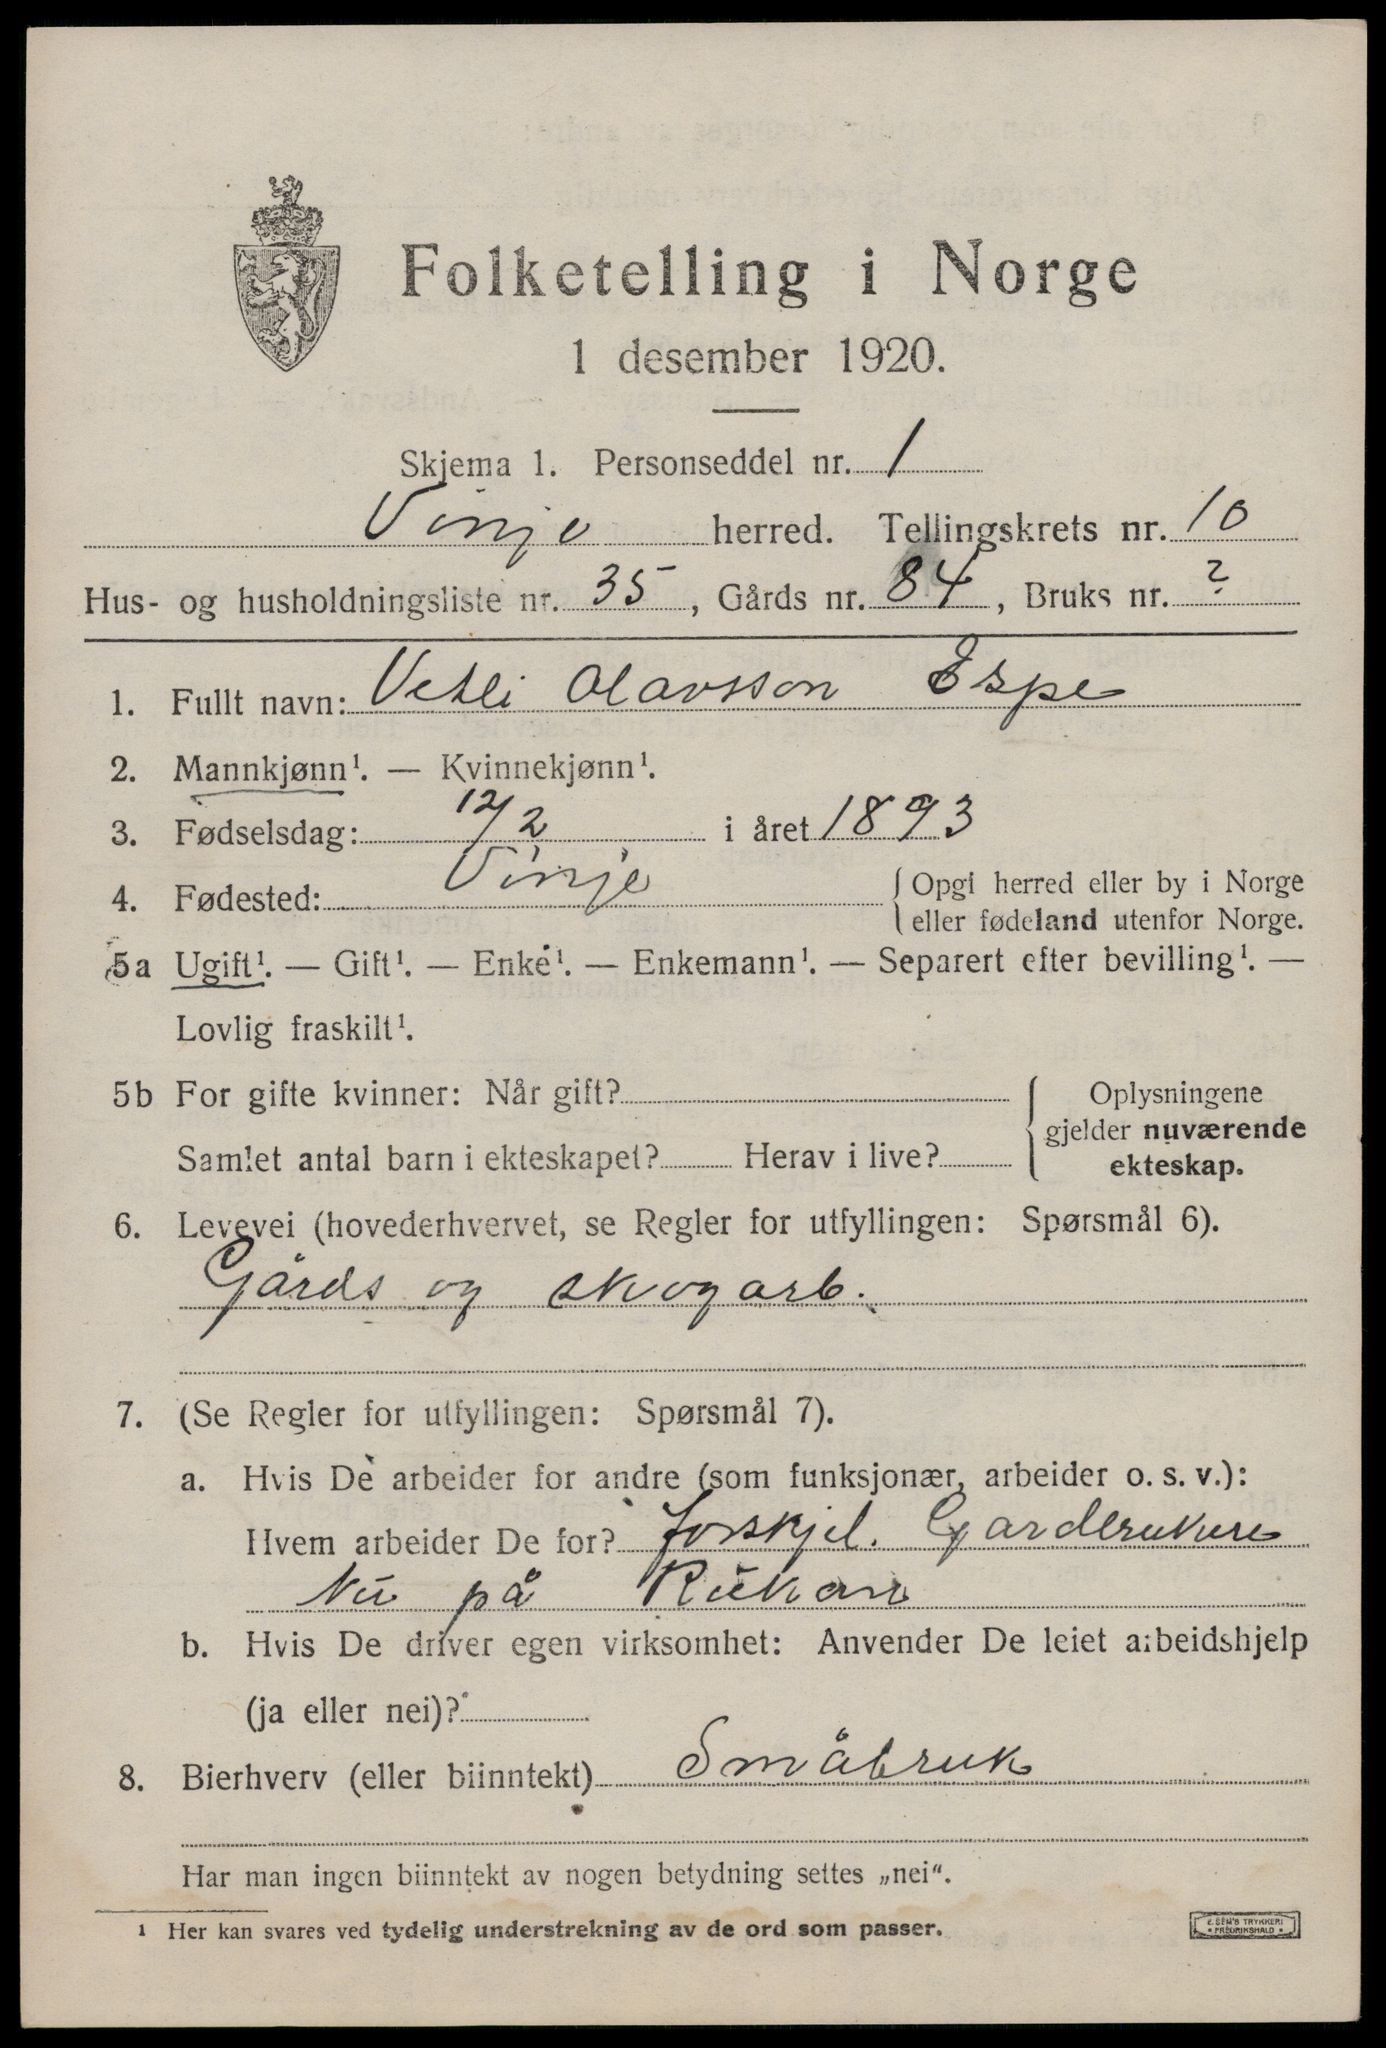 Folketelling i Norge
1 desember 1920.
Skjema 1. Personseddel nr. 1
Vinje herred. Tellingskrets nr. 10
Hus- og husholdningsliste nr. 35, Gårds nr. 84, Bruks nr. ?
1. Fullt navn: Vetli Olavsson Espe
2. Mannkjønn¹. — Kvinnekjønn¹.
3. Fødselsdag: 12/2 i året 1893
4. Fødested: Vinje {Opgi herred eller by i Norge
eller fødeland utenfor Norge.
5a Ugift¹. — Gift¹. — Enke¹. — Enkemann¹. — Separert efter bevilling¹. —
Lovlig fraskilt¹.
5b For gifte kvinner: Når gift?
Samlet antal barn i ekteskapet? Herav i live?
{Oplysningene
gjelder nuværende
ekteskap.
6. Levevei (hovederhvervet, se Regler for utfyllingen: Spørsmål 6).
Gårds og skogarb.
7. (Se Regler for utfyllingen: Spørsmål 7).
a. Hvis De arbeider for andre (som funksjonær, arbeider o. s. v.):
Hvem arbeider De for? forskjel. Gardbrukere
Nu på Rukan
b. Hvis De driver egen virksomhet: Anvender De leiet arbeidshjelp
(ja eller nei)?
8. Bierhverv (eller biinntekt) Småbruk
Har man ingen biinntekt av nogen betydning settes „nei“.
¹ Her kan svares ved tydelig understrekning av de ord som passer.
E. SEM'S TRYKKERI
FREDRIKSHALD